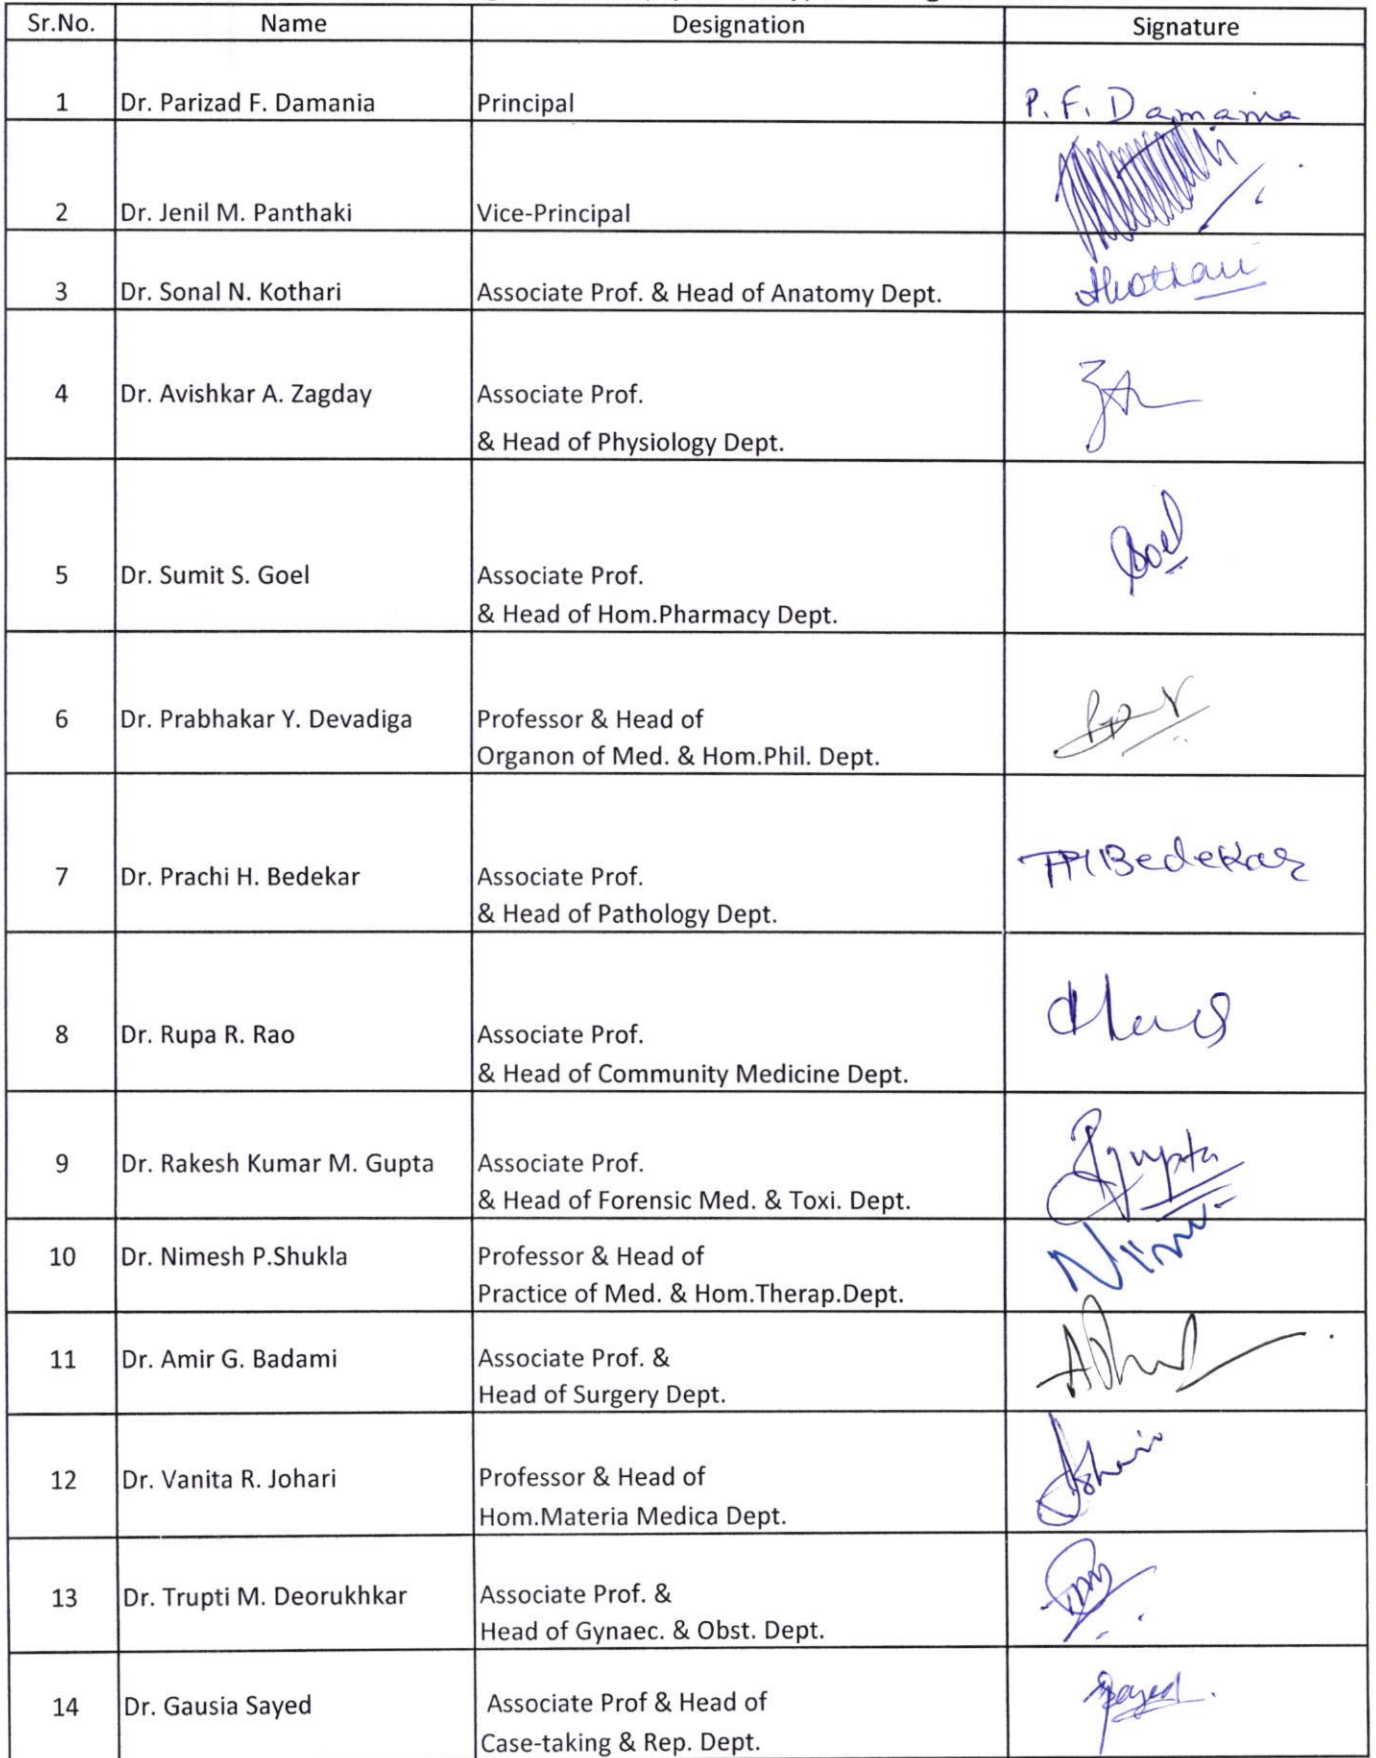 Sr.No. Name Designation Signature
1 Dr. Parizad F. Damania Principal P. F. Damania
2 Dr. Jenil M. Panthaki Vice-Principal
3 Dr. Sonal N. Kothari Associate Prof. & Head of Anatomy Dept. Kothari
4 Dr. Avishkar A. Zagday Associate Prof.
& Head of Physiology Dept.
5 Dr. Sumit S. Goel Associate Prof. Goel
& Head of Hom.Pharmacy Dept.
6 Dr. Prabhakar Y. Devadiga Professor & Head of
Organon of Med. & Hom.Phil. Dept.
7 Dr. Prachi H. Bedekar Associate Prof. PHBedekar
& Head of Pathology Dept.
8 Dr. Rupa R. Rao Associate Prof.
& Head of Community Medicine Dept.
9 Dr. Rakesh Kumar M. Gupta Associate Prof. Rgupta
& Head of Forensic Med. & Toxi. Dept.
10 Dr. Nimesh P.Shukla Professor & Head of
Practice of Med. & Hom.Therap.Dept.
11 Dr. Amir G. Badami Associate Prof. &
Head of Surgery Dept.
12 Dr. Vanita R. Johari Professor & Head of
Hom.Materia Medica Dept.
13 Dr. Trupti M. Deorukhkar Associate Prof. &
Head of Gynaec. & Obst. Dept.
14 Dr. Gausia Sayed Associate Prof & Head of Sayed
Case-taking & Rep. Dept.